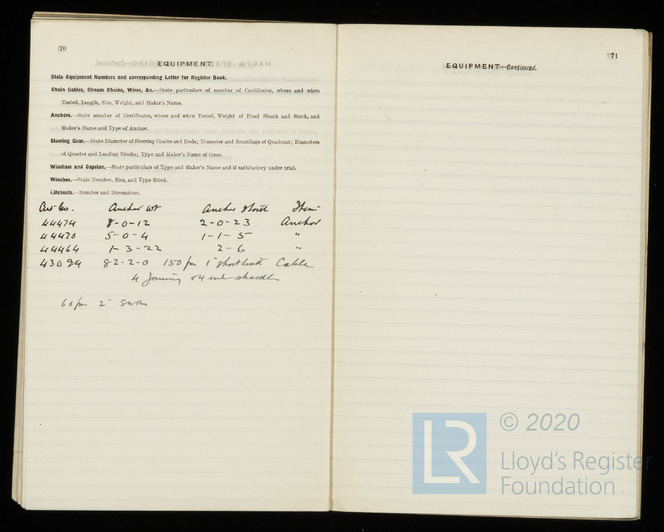 70
EQUIPMENT.
State Equipment Numbers and corresponding Letter for Register Book.
Chain Cables, Stream Chains, Wires, &c.—State particulars of number of Certificates, where and when
Tested, Length, Size, Weight, and Maker's Name.
Anchors.—State number of Certificates, where and when Tested, Weight of Head Shank and Stock, and
Maker's Name and Type of Anchor.
Steering Gear.—State Diameter of Steering Chains and Rods; Diameter and Scantlings of Quadrant; Diameters
of Quarter and Leading Blocks; Type and Maker's Name of Gear.
Windlass and Capstan.—State particulars of Type and Maker's Name and if satisfactory under trial.
Winches.—State Number, Size, and Type fitted.
Lifeboats.—Number and Dimensions.
Cert No. Anchor wt Anchor Stock Item
44474 8-0-12 2-0-23 Anchor
44470 5-0-4 1-1-5 "
44464 1-3-22 2-6 "
43094 82-2-0 150 fm 1" short link Cable
4 joining 04 end shackles
60 fm 2"
71
EQUIPMENT—Continued.
LR
© 2020
Lloyd's Register
Foundation